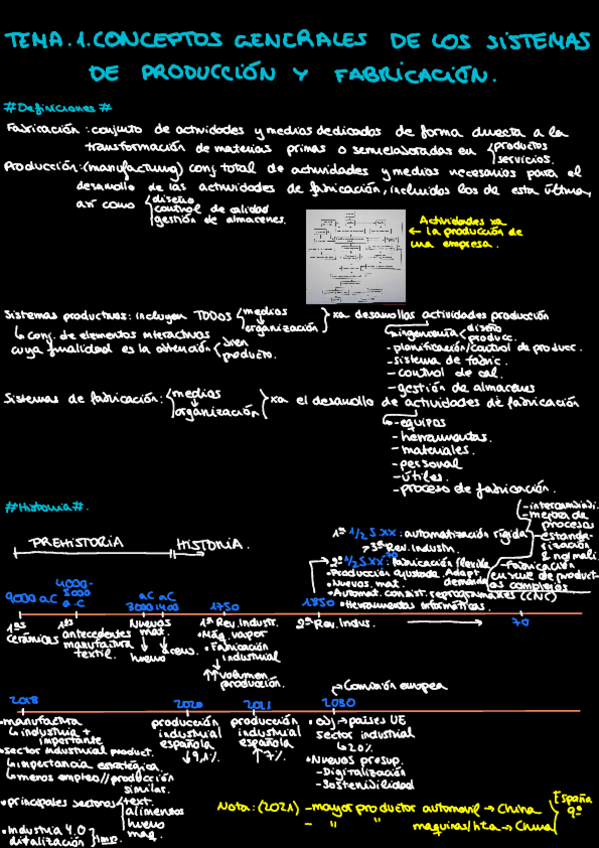 TEMA.1.CONCEPTOS GENERALES DE LOS SISTEMAS
DE PRODUCCIÓN Y FABRICACIÓN.
#Definiciones#
Fabricación: conjunto de actividades y medios dedicados de forma directa a la
transformación de materias primas o semielaboradas en productos
servicios.
Producción: (manufacturing) conj total de actividades y medios necesarios para el
desarrollo de las actividades de fabricación, incluidos los de esta última,
así como diseño
control de calidad
gestión de almacenes.
Actividades xa
← la producción de
una empresa.
Sistemas productivos: incluyen TODOS medios
organización
xa desarrollar actividades producción
↳ conj. de elementos interactivos
cuya finalidad es la obtención bien
producto.
-ingeniería diseño
producc.
-planificación/control de producc.
-sistema de fabric.
-control de cal.
-gestión de almacenes
Sistemas de fabricación: medios
organización
xa el desarrollo de actividades de fabricación
-equipos
-herramientas.
-materiales.
-personal
-útiles.
-proceso de fabricación.
#Historia#.
PREHISTORIA
HISTORIA.
1ª 1/2 S.XX: automatización rígida
→3ªRev.Industr.
2ª 1/2 S.XX: fabricación flexible
70
-Producción ajustada. Adapt.
demanda
•Nuevos mat.
•Automat. consist. reprogramables (CNC)
•Herramientas informáticas.
-mejora de
procesos
-estanda-
rización
-Fabricación
en rue de product-
os complejos
9000 a.C
4000-
5000
a.C
aC
3000
aC
1400
1750
1850
70
1ªs
cerámicas
1ºs
antecedentes
manufactura
textil.
Nuevos
mat.
↓
hierro
acero.
1ªRev.Industr.
•Máq. vapor
•Fabricación
industrial
↑↑volumen
producción.
2ªRev.Indus.
2018
2020
2021
2030
→Comisión europea
•manufactura
↳industria +
importante
•sector industrial product.
↳importancia estratégica.
↳menos empleo//producción
similar.
•principales sectores text.
alimentos
hierro
maq.
•Industria 4.0
digitalización
imp.
producción
industrial
española
↓9,1%.
producción
industrial
española
↑7%.
•obj→países UE
sector industrial
↳20%
•Nuevos presup.
-Digitalización
-Sostenibilidad
Nota: (2021) -mayor productor automovil→China
- " " maquinas/hta→China
España
9º